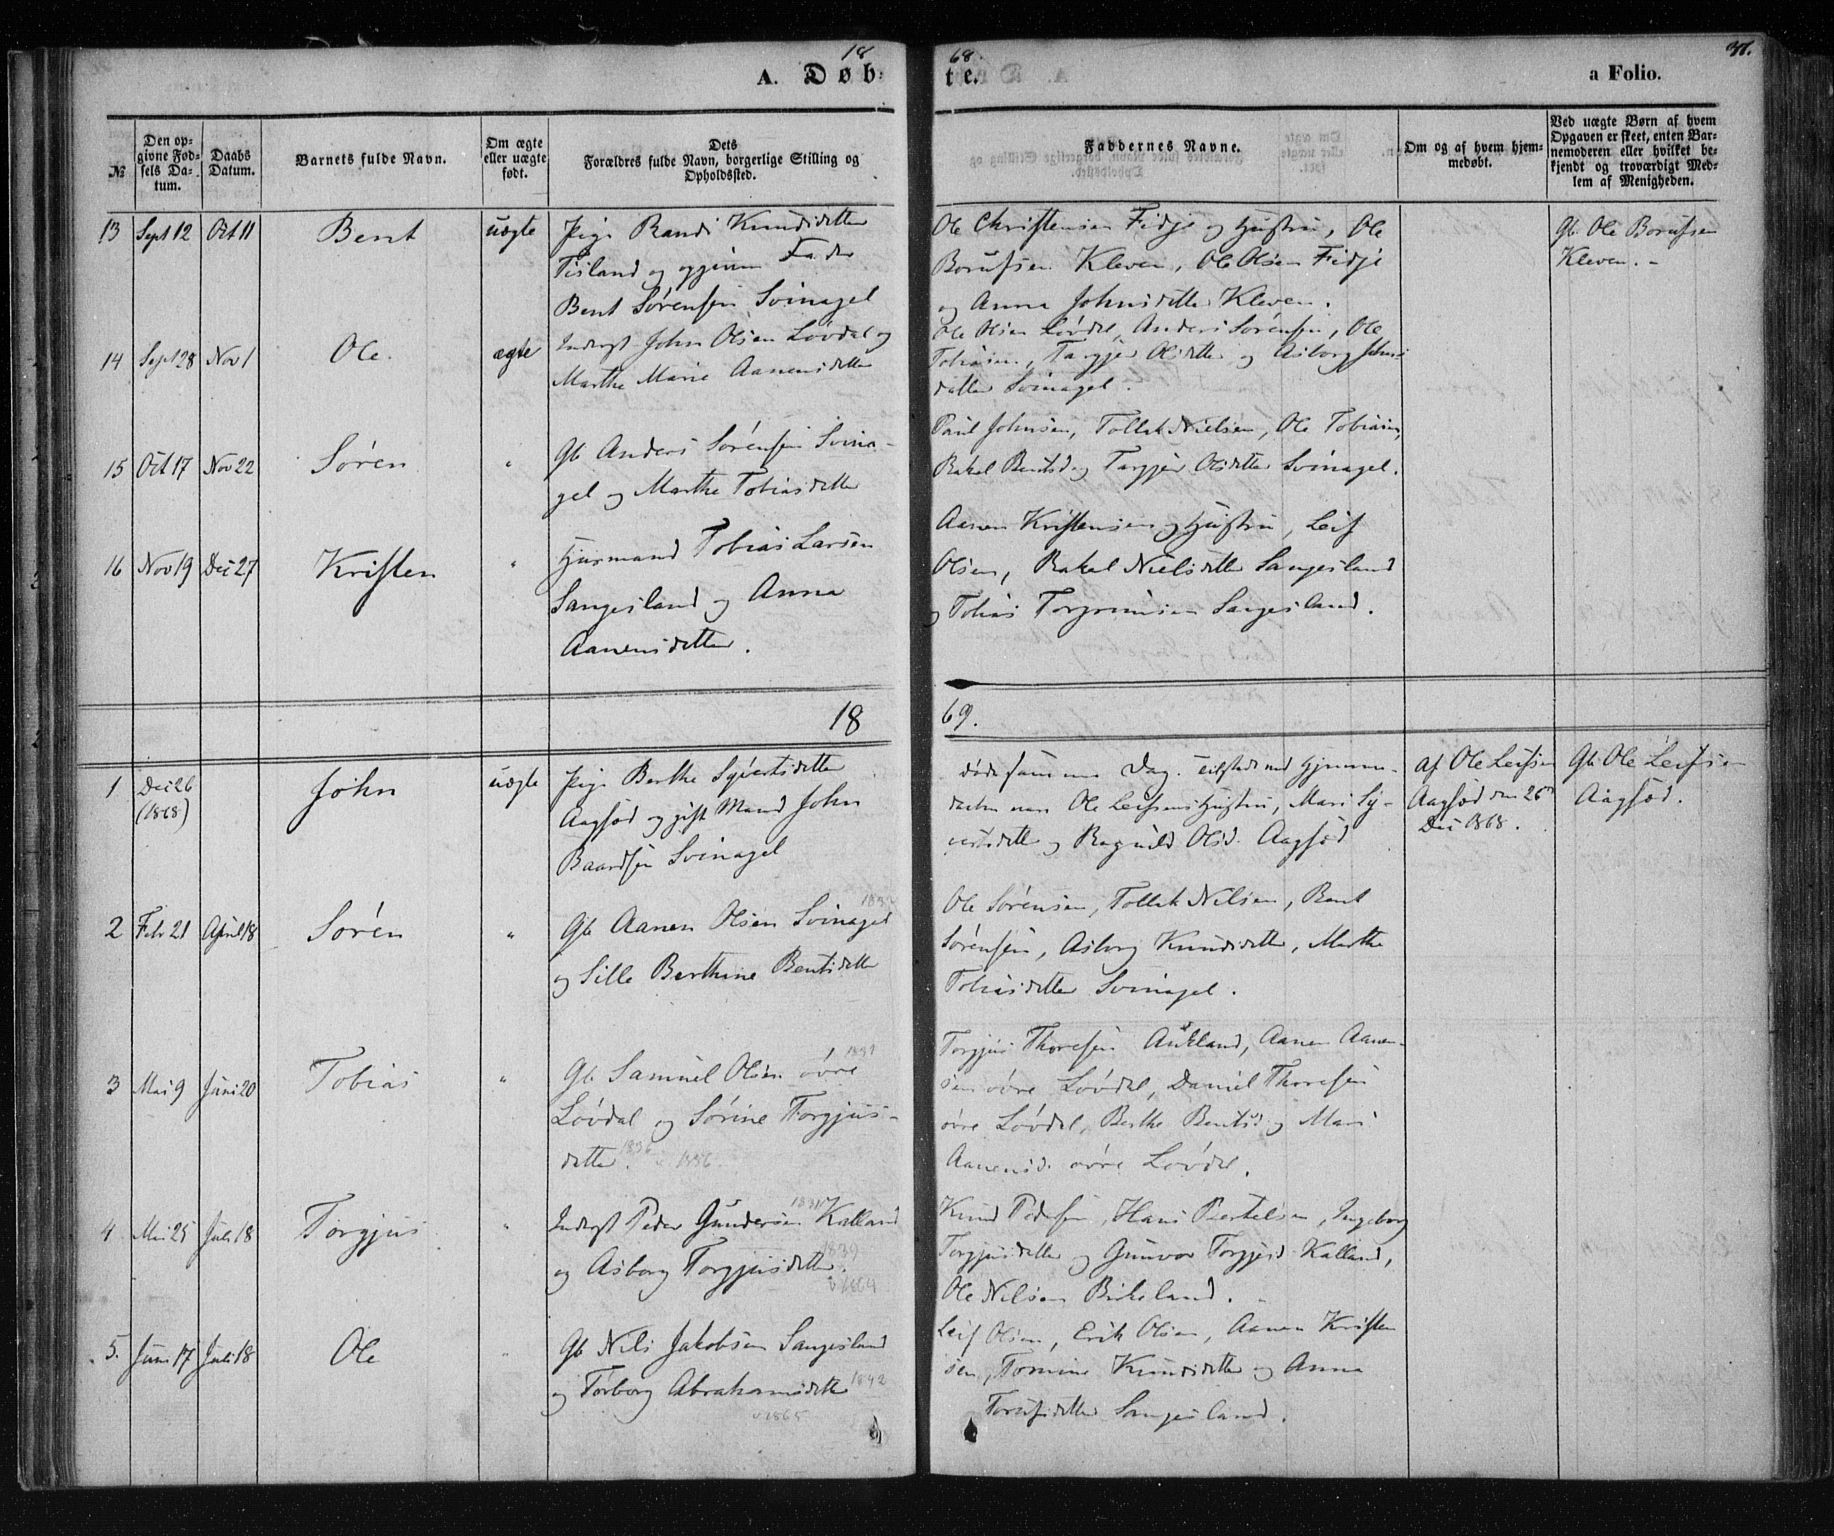 18 68. 37.
A. Døb- te. a Folio.
№
Den op-
givne Fød-
sels Da-
tum.
Daabs
Datum.
Barnets fulde Navn.
Om ægte
eller uægte
født.
Dets
Forældres fulde Navn, borgerlige Stilling og
Opholdssted.
Faddernes Navne.
Om og af hvem hjem-
medøbt.
Ved uægte Børn af hvem
Opgaven er skeet, enten Bar-
nemoderen eller hvilket be-
kjendt og troværdigt Med-
lem af Menigheden.
13 Sept 12 Oct 11 Bent uægte
Pige Randi Knudsdatter
Tisland og Fader
Bent Sørensen Svinagel
Ole Christensen Fidje og Hustru, Ole
Borufsen Kleven, Ole Olsen Fidje
og Anna Johnsdatter Kleven.
Gb. Ole Borufsen
Kleven. -
14 Sept 28 Nov 1 Ole ægte
Inderst John Olsen Løvdal og
Marthe Marie Aanensdatter
Ole Olsen Løvdal, Anders Sørensen, Ole
Tobiasen, Targjer Olsdatter og Asborg Johns
datter Svinagel.
15 Oct 17 Nov 22 Søren "
Gb Anders Sørensen Svina-
gel og Marthe Tobiasdatter
Paul Johnsen, Tollak Nielsen, Ole Tobiasen,
Rakel Bentsd og Targjer Olsdatter Svinagel.
16 Nov 19 Dec 27 Kristen "
Huusmand Tobias Larsen
Sangesland og Anna
Aanensdatter.
Aanen Kristensen og Hustru, Leif
Olsen, Rakel Nielsdatter Sangesland
og Tobias Torgrimsen Sangesland.
18 69.
1 Dec 26
(1868)
John uægte
Pige Berthe Syvertsdatter
Aagsød og gift Mand John
Baardsen Svinagel
døde samme Dag. tilstede ved Hjemme-
daaben var Ole Leifsens Hustru, Mari Sy-
vertsdatter og Ragnild Olsd. Aagsød
Af Ole Leifsen
Aagsød den 26de
Dec 1868.
Gb. Ole Leifsen
Aagsød.
2 Febr 21 April 18 Søren "
Gb Aanen Olsen Svinagel
og Sille Berthine Bentsdatter
Ole Sørensen, Tollak Nilsen, Bent
Sørensen, Asborg Knudsdatter, Marthe
Tobiasdatter Svinagel.
3 Mai 9 Juni 20 Tobias "
Gb Samuel Olsen øvre
Løvdal og Sørine Torgjus-
datter. 1836 v 1856.
Torgjus Thoresen Aukland, Aanen Aanen-
sen øvre Løvdal, Daniel Thoresen
øvre Løvdal, Berthe Bentsd og Mari
Aanensd. øvre Løvdal.
4 Mai 25 Juli 18 Torgjus "
Inderst Peder Gundersen Kalland 1831
og Asborg Torgjusdatter. 1839
v 1864
Knud Pedersen, Hans Bertelsen, Ingeborg
Torgjusdatter og Gunvor Torgjusd. Kalland,
Ole Nilsen Birkeland.
5. Juni 17 Juli 18 Ole "
Gb Nils Jakobsen Sangesland
og Torborg Abrahamsdatter 1842
v 1865
Leif Olsen, Erik Olsen, Aanen Kristen
sen, Tomine Knudsdatter og Anna
Torufsdatter Sangesland.